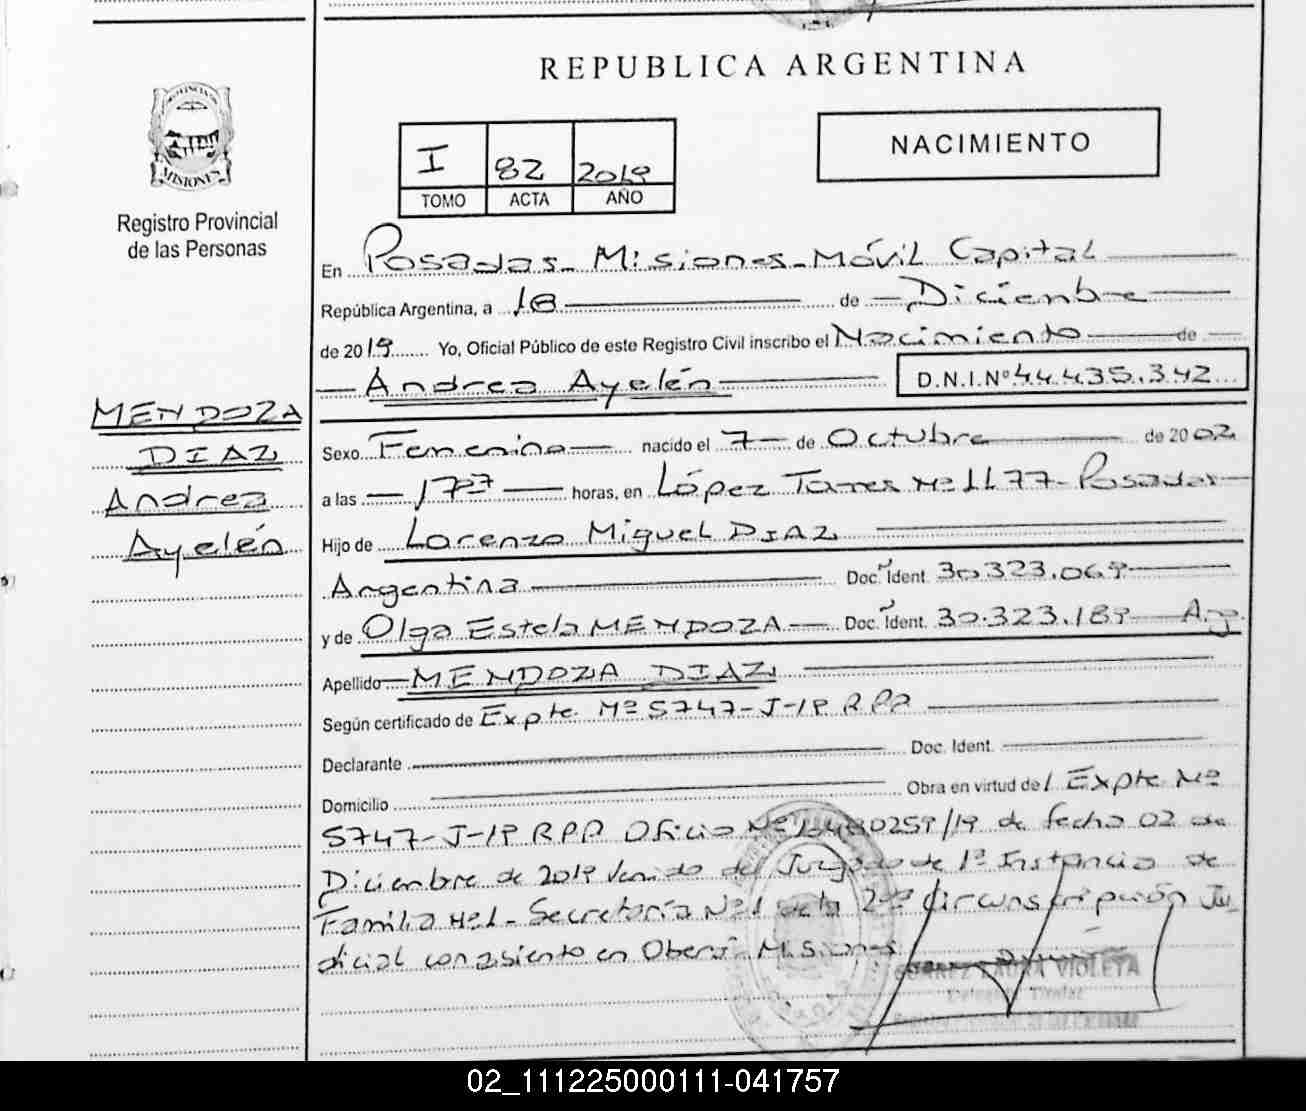 REPUBLICA ARGENTINA
NACIMIENTO
I 82 2019
TOMO ACTA AÑO
MISIONES
Registro Provincial
de las Personas
En Posadas - Misiones - Móvil Capital
República Argentina, a 18 de Diciembre
de 2019 Yo, Oficial Público de este Registro Civil inscribo el Nacimiento de
Andrea Ayelén D.N.I.Nº 44.435.342
MENDOZA
DIAZ
Andrea
Ayelén
Sexo Femenino nacido el 7 de Octubre de 2002
a las 17 27 horas, en López Torres Nº 1177 - Posadas
Hijo de Lorenzo Miguel DIAZ
Argentina Doc. Ident. 30.323.069
y de Olga Estela MENDOZA Doc. Ident. 30.323.189 Arg.
Apellido MENDOZA DIAZ
Según certificado de Expte. Nº 5747-J-19 RPP
Declarante Doc. Ident.
Domicilio Obra en virtud del Expte Nº
5747-J-19 RPP Oficio de fecha 02 de
Diciembre de 2019 venido del Juzgado de 1ª Instancia de
Familia Nº1 - Secretaría Nº1 de la 2da Circunscripción Ju
dicial con asiento en Oberá - Misiones
SUAREZ LAURA VIOLETA
Titular
02_111225000111-041757